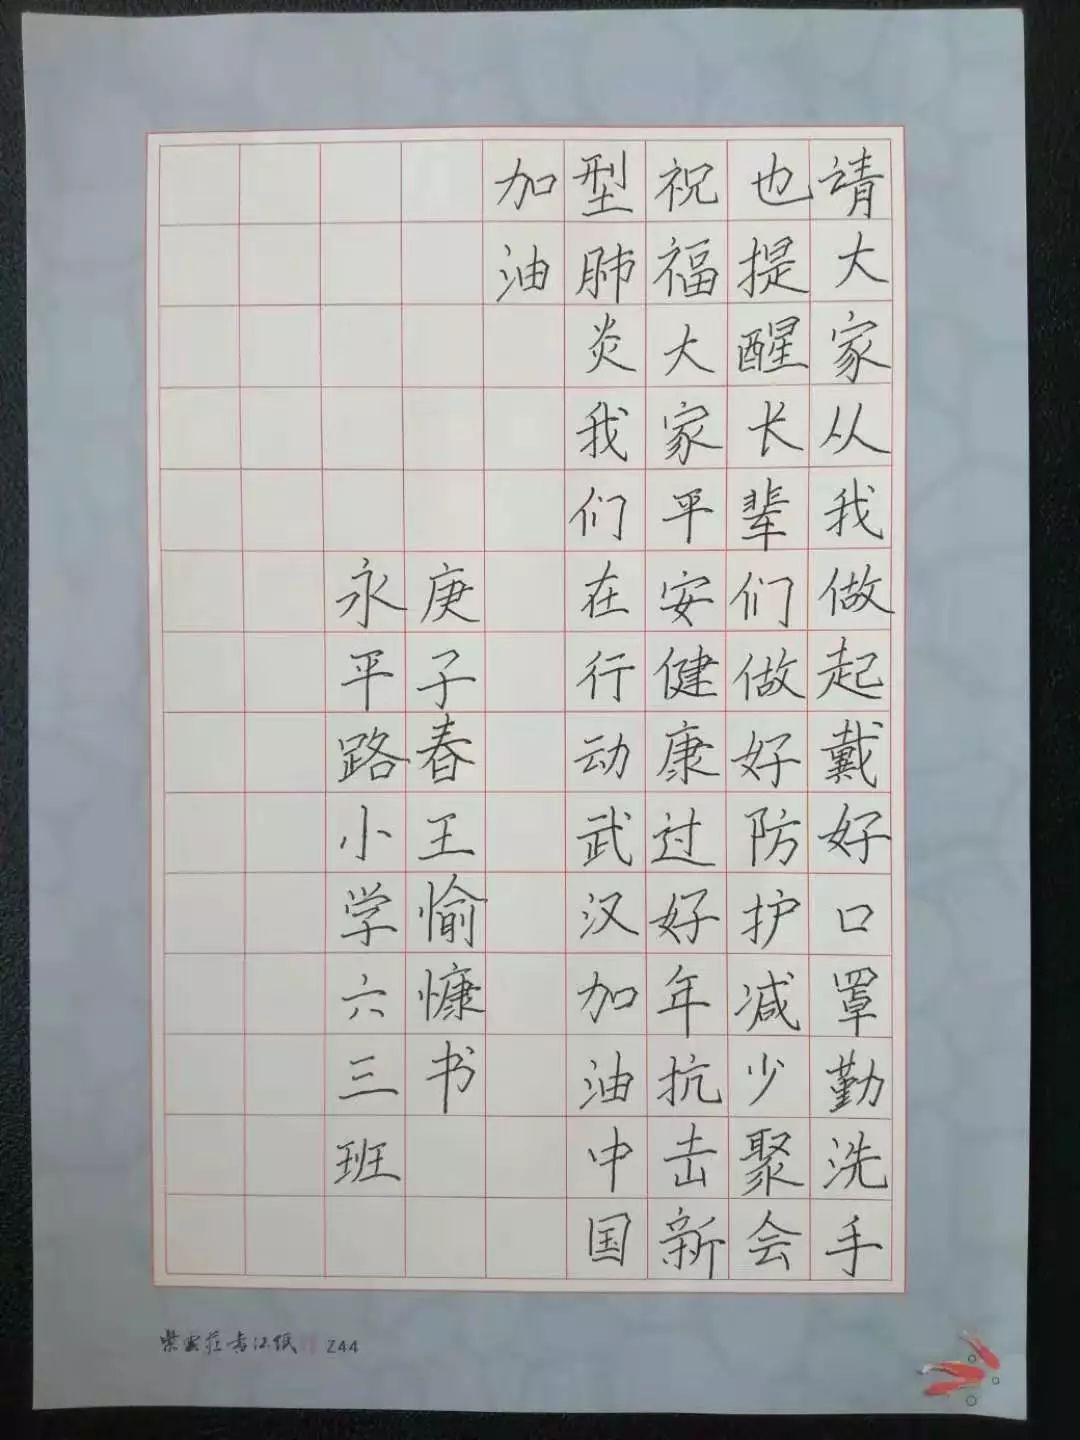 请大家从我做起戴好口罩勤洗手
也提醒长辈们做好防护减少聚会
祝福大家平安健康过好年抗击新
型肺炎我们在行动武汉加油中国
加油
庚子春王愉慷书
永平路小学六三班
紫云庄书法纸 244